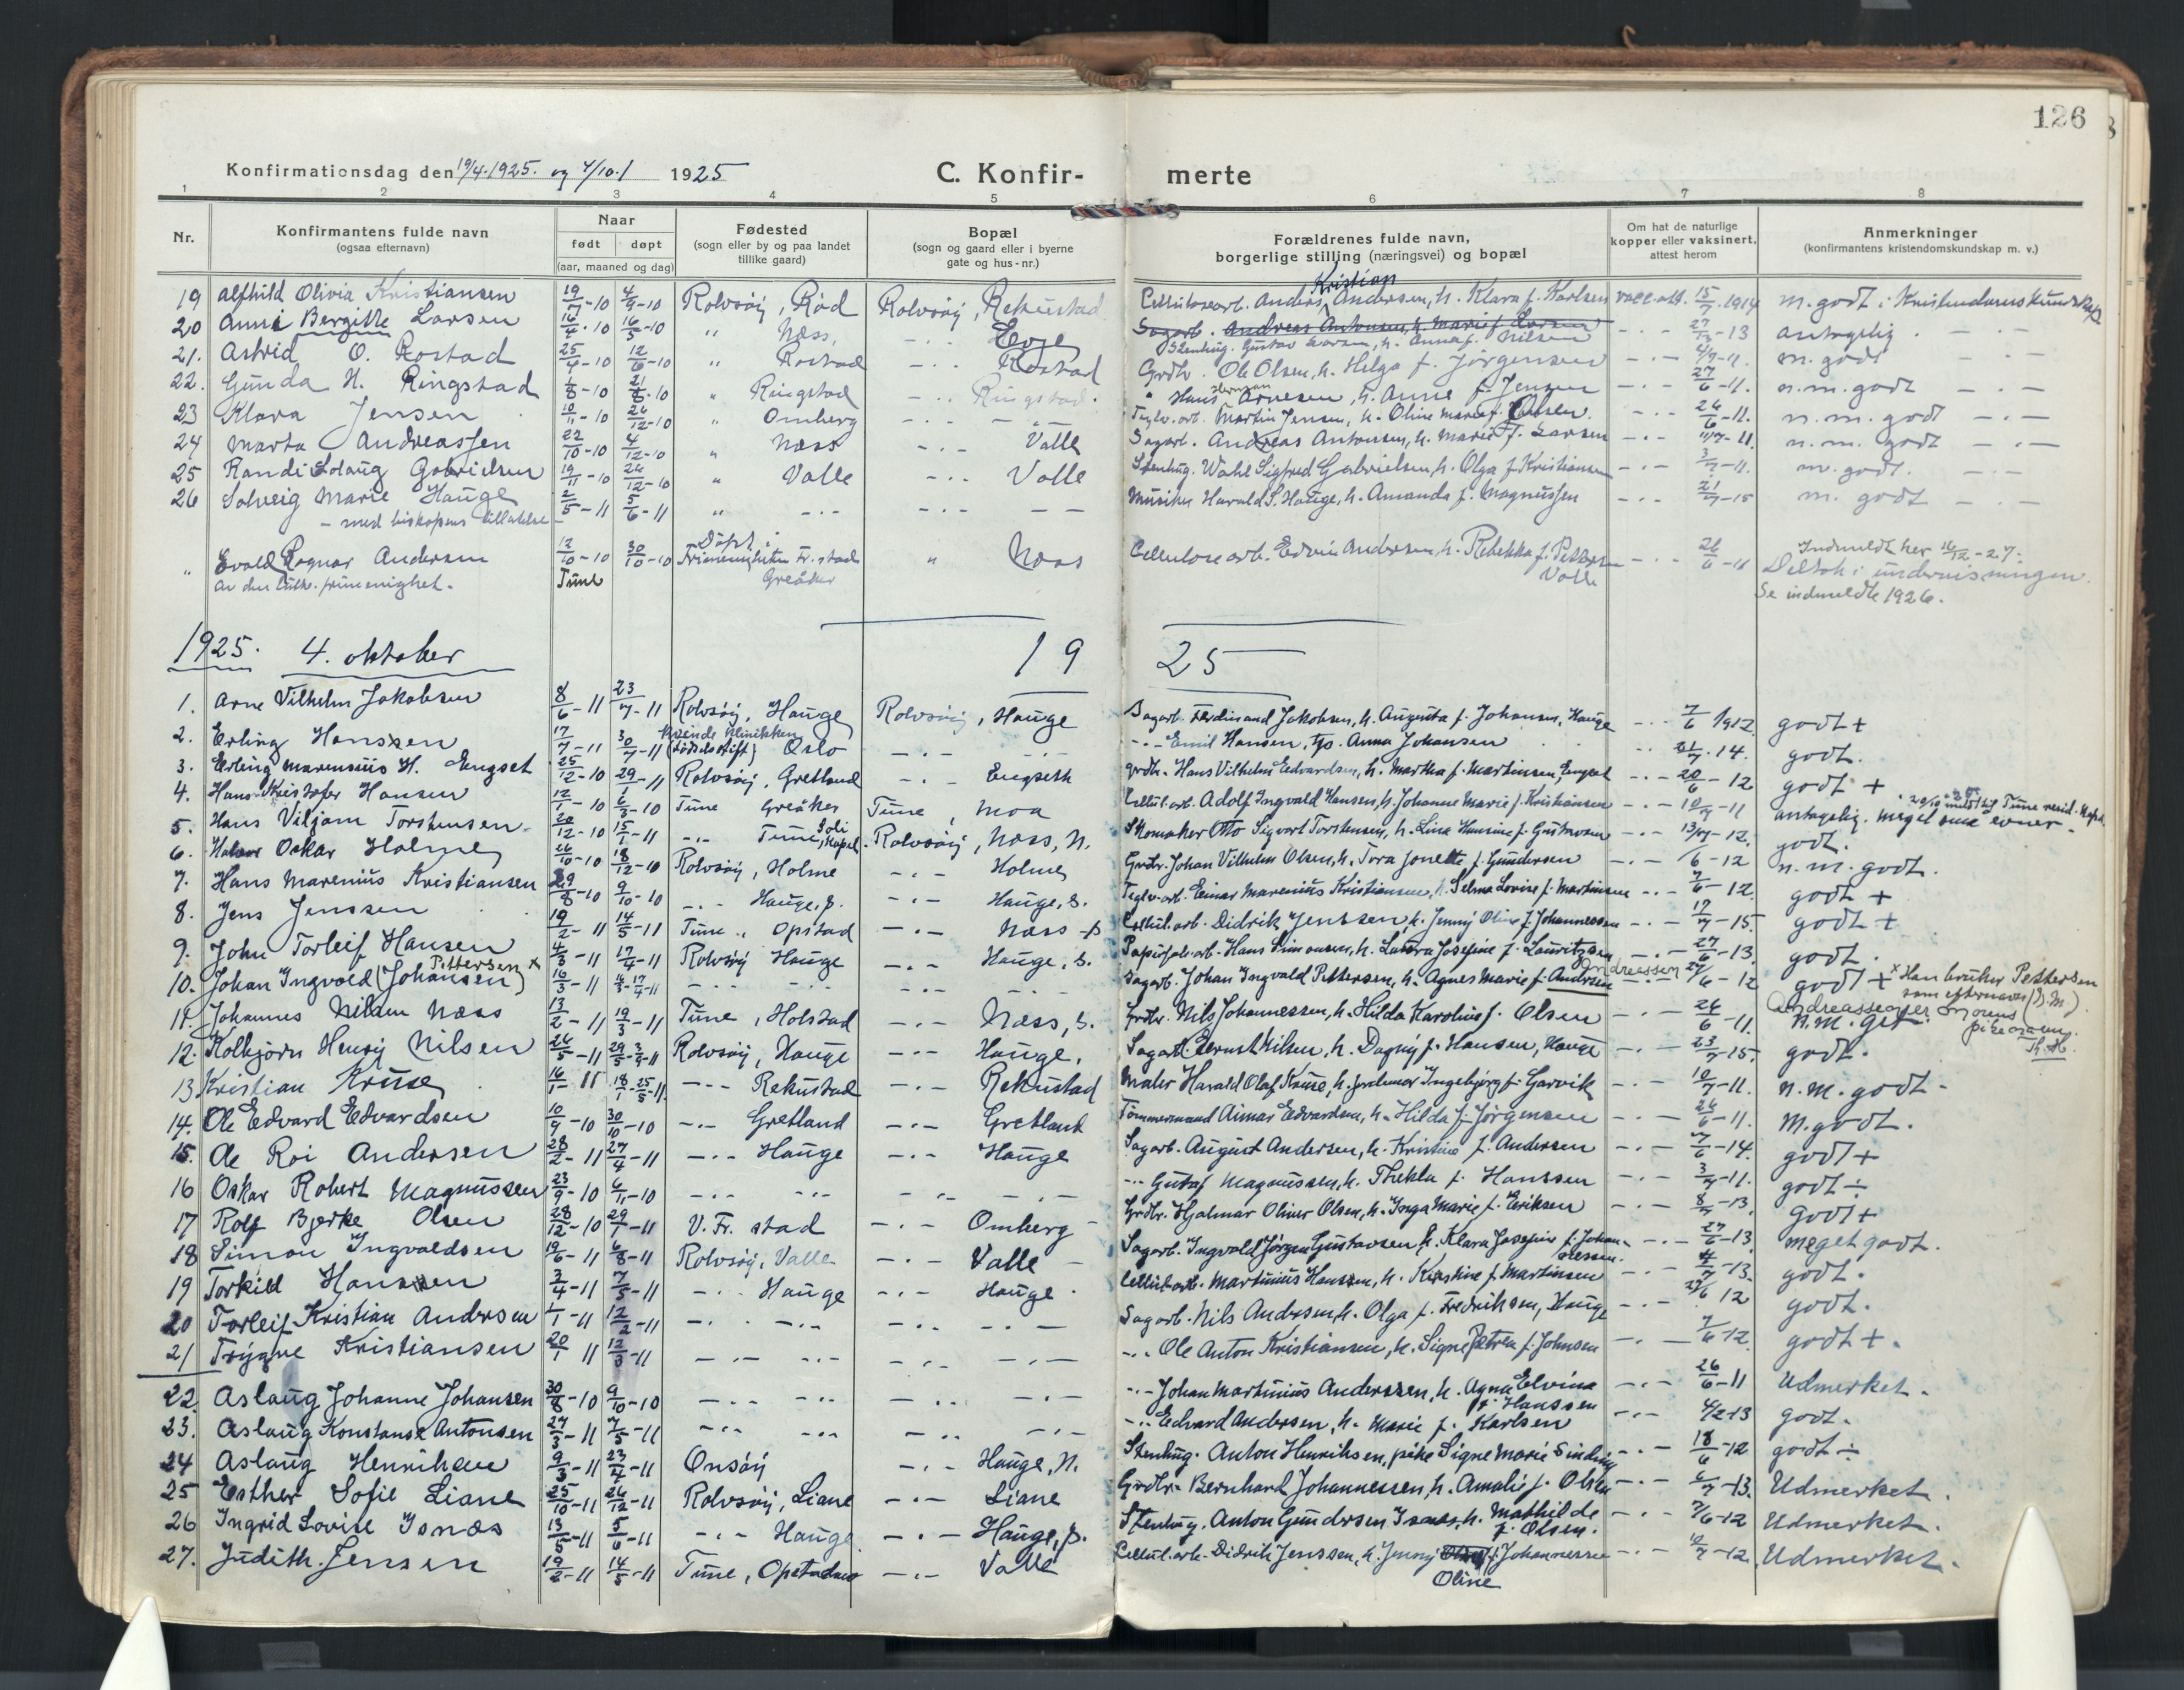 126
Konfirmationsdag den 19/4.1925. og 4/10.1 1925 C. Konfir- merte
1 2 3 4 5 6 7 8
Nr. Konfirmantens fulde navn (ogsaa efternavn) Naar født døpt (aar, maaned og dag) Fødested (sogn eller by og paa landet tillike gaard) Bopæl (sogn og gaard eller i byerne gate og hus-nr.) Forældrenes fulde navn, borgerlige stilling (næringsvei) og bopæl Om hat de naturlige kopper eller vaksinert, attest herom Anmerkninger (konfirmantens kristendomskundskap m. v.)
19 Alfhild Olivia Kristiansen 19/7-10 4/9-10 Rolvsøy, Rød Rolvsøy, Rekustad Cellulosearb. Anders Kristian Andersen, h. Klara f. Karlsen vacc.att. 15/7.1914 m. godt i Kristendomskundskap
20 Anni Bergitte Larsen 16/4-10 16/5-10 " Næss, -.- Evje Sagarb. Andreas Antonsen, h. Marie f. Larsen -.- 27/-13 antagelig. -.-
Stenhug. Gustav Larsen, h. Anna f. Nilsen
21. Astrid O. Rostad 25/4-10 12/6-10 " Rostad -.- Rostad Grdbr. Ole Olsen, h. Helga f. Jørgensen -.- 4/7-11. m. godt -.-
22. Gunda H. Ringstad 21/8-10 " Ringstad -.- Ringstad. " Hans Herman Arnesen, h. Anne f. Jensen -.- 27/6-11. n.m. godt -.-
23 Klara Jensen 10/11-10 26/12-10 " Omberg -.- -.- Teglv.arb. Martin Jensen, h. Oline Marie f. Olsen. -.- 26/6-11. n.m. godt -.-
24 Marta Andreassen 22/10-10 4/12-10 " Næss -.- Valle Sagarb. Andreas Antonsen, h. Marie f. Larsen -.- 11/7-11. n.m. godt -.-
25 Randi Solaug Gabrielsen 19/11-10 26/12-10 " Valle -.- Valle Stenhug. Wahl Sigfred Gabrielsen, h. Olga f. Kristiansen -.- 3/7-11. m. godt. --
26 Solveig Marie Hauge 2/5-11 5/6-11 " -.- -.- -- Musiker Harald S. Hauge, h. Amanda f. Magnussen -.- 21/7-15 m. godt -.-
- med biskopens tillatelse -
" Evald Ragnar Andersen 12/10-10 30/10-10 Døpt i Frimenigheten Fr.stad " Næss Cellulose arb. Edvin Andersen, h. Rebekka f. Pettersen -.- 26/6-11 Indmeldt her 16/12-27.
av den luth. frimenighet. Tune Greåker Valle Deltok i undervisningen.
Se indmeldte 1926.
1925. 4. oktober 19 25
1. Arne Vilhelm Jakobsen 8/6-11 23/7-11 Rolvsøy, Hauge Rolvsøy, Hauge Sagarb. Ferdinand Jakobsen, h. Augusta f. Johansen, Hauge -.- 7/6 1912 godt +
2. Erling Hanssen 17/7-11 30/7-11 Kvinde klinikken (Fødselsstift) Oslo -.- -.- -.- Emil Hansen, tjp. Anna Johansen -.- 21/7.14. godt.
3. Erling Marensius H. Engset 25/12-10 29/1-11 Rolvsøy, Gretland -.- Engseth Grdbr. Hans Vilhelm Edvardsen, h. Martha f. Martinsen, Engset -.- 20/6-12 godt +
4. Hans Kristofer Hansen 12/1-10 6/3-10 Tune Greåker Tune, Moa Cellul.arb. Adolf Ingvald Hansen, h. Johanne Marie f. Kristiansen -.- 10/7-11 antagelig. Meget små evner.
5. Hans Viljam Torstensen. 20/12-10 15/1-11 -.- Tune, Soli Kapel. Rolvsøy, Næss, N. Skomaker Otto Sigvart Torstensen, h. Lina Hansine f. Gustavsen -.- 13/7-12. godt.
6. Oskar Holme 26/10-10 18/12-10 Rolvsøy, Holme -.- Holme Grdbr. Johan Vilhelm Olsen, h. Tora Jonette f. Gundersen -.- 6-12 n.m. godt.
7. Hans Marenius Kristiansen 29/8-10 9/10-10 -.- Hauge, s. -.- Hauge, s. Teglv.arb. Einar Marenius Kristiansen, h. Selma Lovise f. Martinsen -.- 7/6-12. godt +
8. Jens Jenssen 19/2-11 14/5-11 Tune, Opstad -.- Næss Cellul.arb. Didrik Jenssen, h. Jenny Oline f. Johannessen -.- 17/7-15. godt +
9. John Torleif Hansen 4/3-11 17/4-11 Rolvsøy Hauge -.- Hauge, s. Papirfab.arb. Hans Simonsen, h. Laura Josefine f. Lauritzen -.- 27/6-13. godt.
10. Johan Ingvald (Johansen) Pettersen x 16/3-11 16/3-17/4-11 -.- -.- -.- -.- Sagarb. Johan Ingvald Pettersen, h. Agnes Marie f. Andersen Andreassen -.- 27/6-12 godt + x Han bruker Pettersen
som efternavn (D.M.).
Andreassen er morens pikenavn. Th. H.
11. Johannes Nilsen Næss 13/2-11 19/3-11 Tune, Holstad -.- Næss, s. Grdbr. Nils Johannessen, h. Hilda Karoline f. Olsen -.- 26/6-11. n.m. gdt.
12. Kolbjørn Henry Nilsen 26/5-11 Rolvsøy, Hauge -.- Hauge. Sagarb. Ernst Nilsen, h. Dagny f. Hansen, Hauge -.- 23/7-15. godt.
13 Kristian Kruse 16/1-11 -.- Rekustad -.- Rekustad Maler Harald Olaf Kruse, h. jordmor Ingebjørg f. Garvik -.- 10/7-11. n.m. godt.
14. Ole Edvard Edvardsen 10/9-10 30/10-10 -.- Gretland -.- Gretland Tømmermand Aimar Edvardsen, h. Hilda f. Jørgensen -.- 26/6-11. m. godt.
15. Ole Roi Andersen 28/2-11 27/4-11 -.- Hauge -.- Hauge Sagarb. August Andersen, h. Kristine f. Andersen -.- 7/6-14. godt +
16 Oskar Robert Magnussen 23/9-10 6/11-10 -.- -.- -.- -.- -.- Gustaf Magnussen, h. Thekla f. Hanssen -.- 3/7-11. godt ÷
17 Rolf Bjerke Olsen 28/12-10 29/1-11 V. Fr. stad -.- Omberg Grdbr. Hjalmar Oliver Olsen, h. Inga Marie f. Eriksen -.- 8/7-13. godt +
18 Simon Ingvaldsen 19/6-11 6/8-11 Rolvsøy, Valle -.- Valle Sagarb. Ingvald Jørgen Gustavsen, h. Klara Josefine f. Johannessen. -.- 27/6-13 meget godt.
19 Torkild Hanssen 3/4-11 7/5-11 -.- Hauge -.- Hauge. Cellul.arb. Martinius Hanssen, h. Kristine f. Martinsen -.- 4/7-13. godt.
20 Torleif Kristian Andersen 1/1-11 12/2-11 -.- -.- -.- -.- Sagarb. Nils Andersen, h. Olga f. Fredriksen, Hauge -.- 27/6 12 godt.
21 Trygve Kristiansen 20/1 11 12/3-11 -.- -.- -.- -.- -.- Ole Anton Kristiansen, h. Signe Petrea f. Johnsen -.- 7/6-12. godt +.
22. Aslaug Johanne Johansen 30/8-10 9/10-10 -.- -.- -.- -.- -.- Johan Martinius Anderssen, h. Agnes Elvine f. Hanssen -.- 26/6-11 Udmerket.
23. Aslaug Konstanse Antonsen 27/3-11 7/5-11 -.- -.- -.- -.- -.- Edvard Andersen, h. Marie f. Karlsen -.- 4/2-13 godt.
24 Aslaug Henriksen 9/3-11 23/4-11 Onsøy -.- Hauge, N. Stenhug. Anton Henriksen, pike Signe Marie Sinding -.- 18/6-12 godt ÷
25 Esther Sofie Liane 25/10-11 26/12-11 Rolvsøy, Liane -.- Liane Grdbr. Bernhard Johannessen, h. Amalie f. Olsen -.- 6/7-13. Udmerket.
26 Ingrid Lovise Isnæs 13/5-11 5/6-11 -.- Hauge -.- Hauge, s. Stenhug. Anton Gundersen Isnæs, h. Mathilde f. Olsen. -.- 7/6-12 Udmerket.
27. Judith Jensen 19/2-11 14/5-11 Tune, Opstad -.- Valle Cellul.arb. Didrik Jenssen, h. Jenny Oline f. Johannessen -.- 10/7-12. Udmerket.